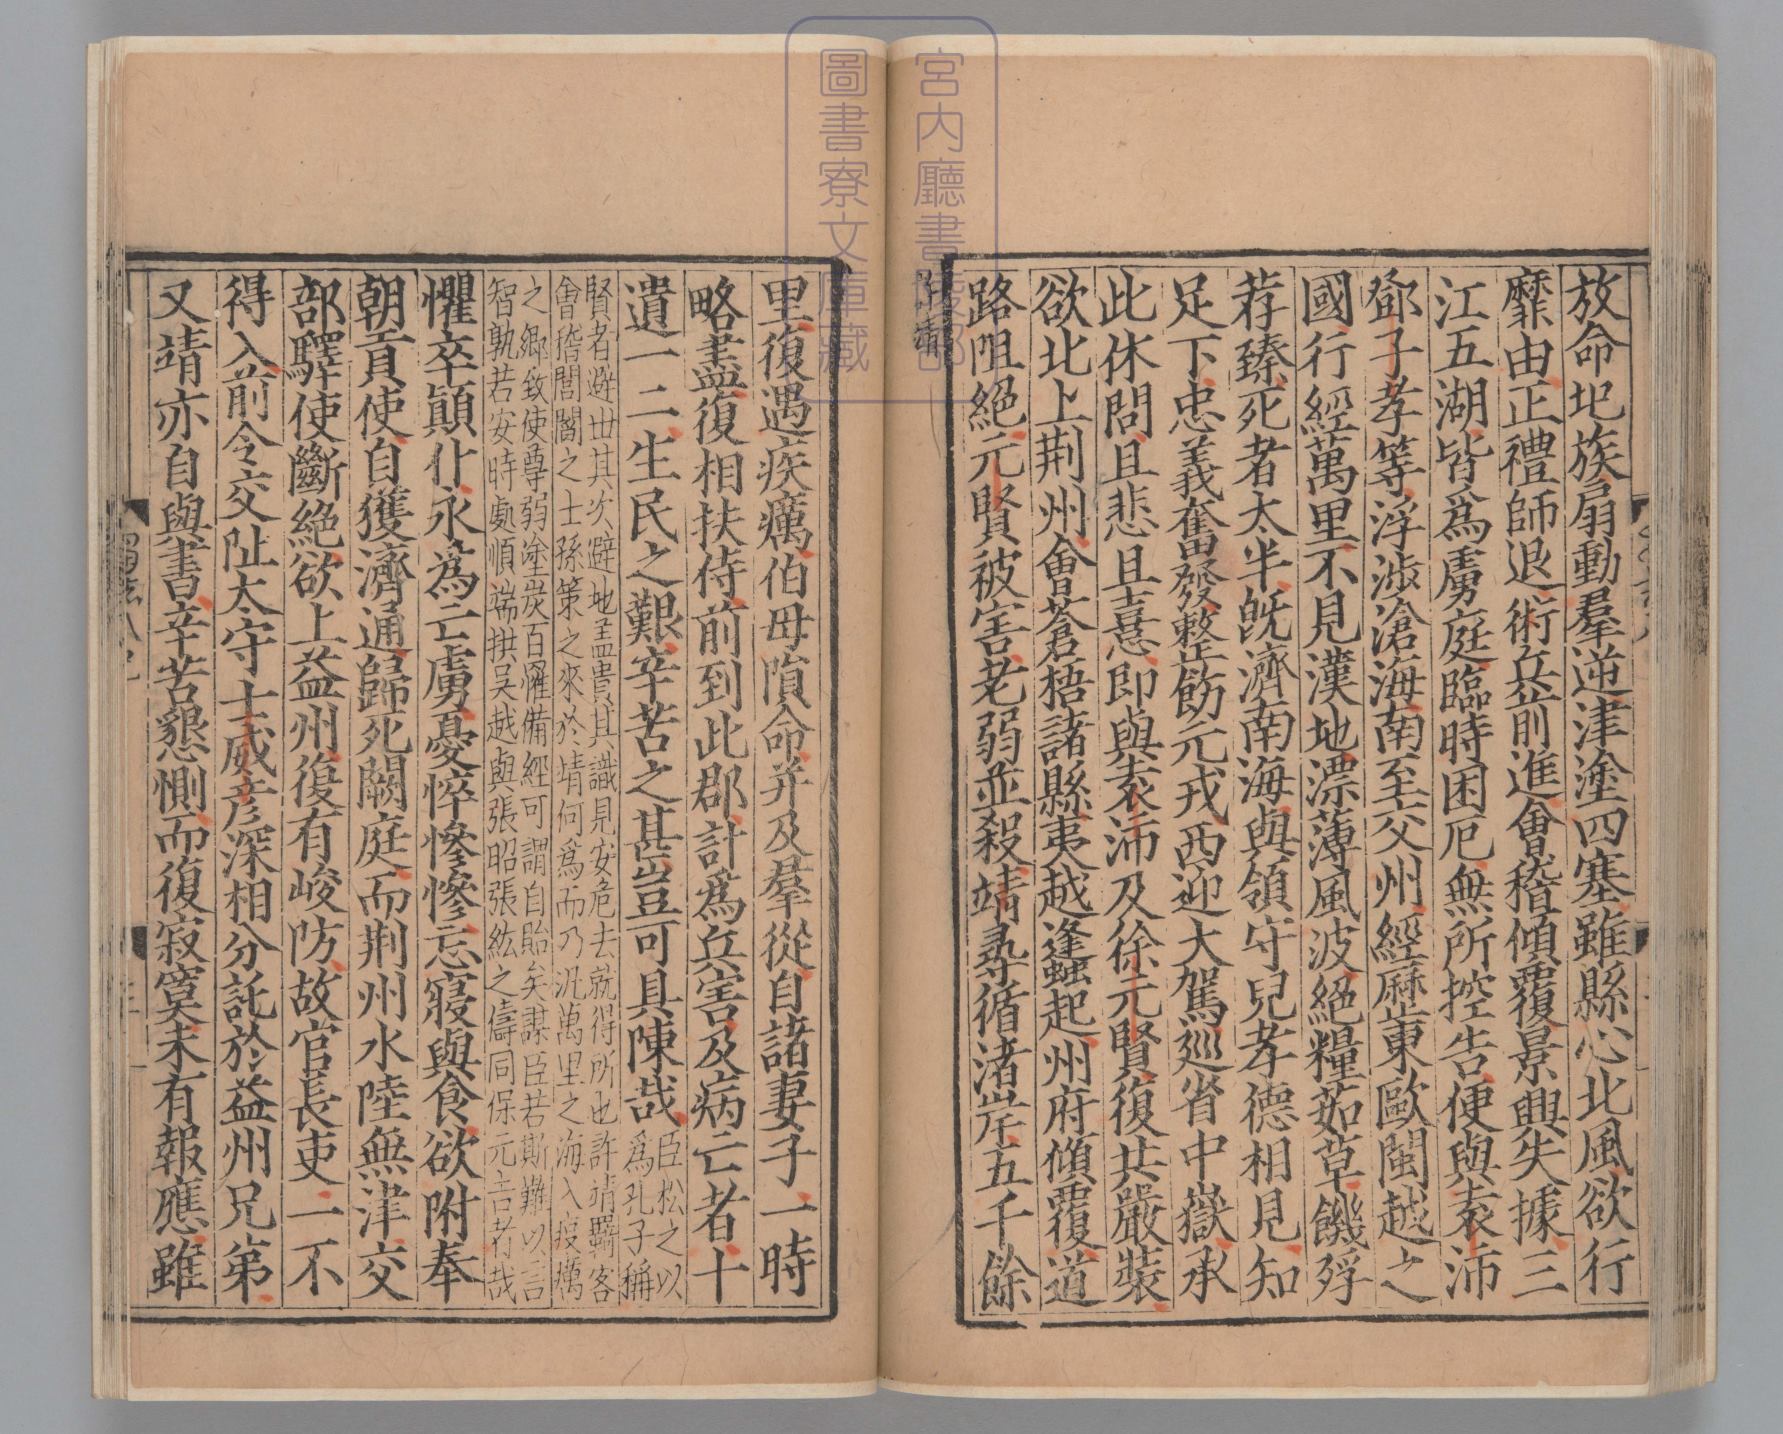 放命圯族扇動羣逆津塗四塞雖縣心北風欲行
靡由正禮師退術兵前進會稽傾覆景興失據三
江五湖皆爲虜庭臨時困厄無所控告便與袁沛
鄧子孝等浮涉滄海南至交州經歷東歐閩越之
國行經萬里不見漢地漂薄風波絕糧茹草饑殍
荐臻死者太半旣濟南海與領守兒孝德相見知
足下忠義奮發整飭元戎西迎大駕巡省中嶽承
此休問且悲且憙即與袁沛及徐元賢復共嚴裝
欲北上荆州會蒼梧諸縣夷越蠭起州府傾覆道
路阻絕元賢被害老弱並殺靖尋循渚岸五千餘
許靖
宮内廳書陵部
圖書寮文庫藏
里復遇疾癘伯母隕命并及羣從自諸妻子一時
略盡復相扶侍前到此郡計爲兵害及病亡者十
遺一二生民之艱辛苦之甚豈可具陳哉
臣松之以
爲孔子稱
賢者避世其次避地蓋貴其識見安危去就得所也許靖羇客
會稽閭閻之士孫策之來於靖何爲而乃汎萬里之海入疫癘
之鄉致使尊弱塗炭百罹備經可謂自貽矣謀臣若斯難以言
智孰若安時處順端拱吳越與張昭張紘之儔同保元吉者哉
懼卒顛仆永爲亡虜憂悴慘慘忘寢與食欲附奉
朝貢使自獲濟通歸死闕庭而荆州水陸無津交
部驛使斷絕欲上益州復有峻防故官長吏一不
得入前令交阯太守士威彥深相分託於益州兄弟
又靖亦自與書辛苦懇惻而復寂寞未有報應雖